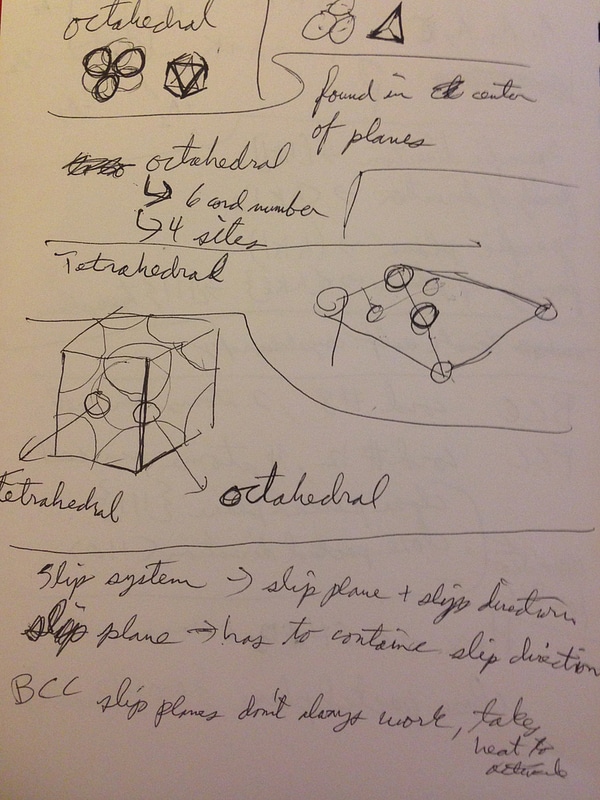 octahedral
found in center
of planes
octahedral
↳ 6 cord number
↳ 4 sites
Tetrahedral
Tetrahedral
octahedral
Slip system → slip plane + slip direction
slip plane → has to containe slip direction
BCC slip planes don't always work, takes
heat to
activate